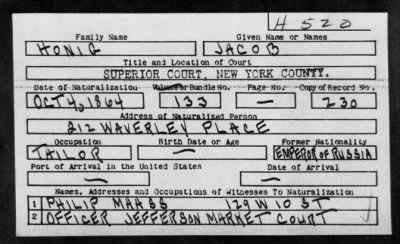 H 520
Family Name Given Name or Names
HONIG JACOB
Title and Location of Court
SUPERIOR COURT, NEW YORK COUNTY.
Date of Naturalization Volume or Bundle No. Page No. Copy of Record No.
OCT 4, 1864 133 — 230
Address of Naturalized Person
212 WAVERLEY PLACE
Occupation Birth Date or Age Former Nationality
TAILOR — EMPEROR OF RUSSIA
Port of Arrival in the United States Date of Arrival
— —
Names, Addresses and Occupations of Witnesses To Naturalization
1 PHILIP MAASS 129 W 10 ST
2 OFFICER JEFFERSON MARKET COURT